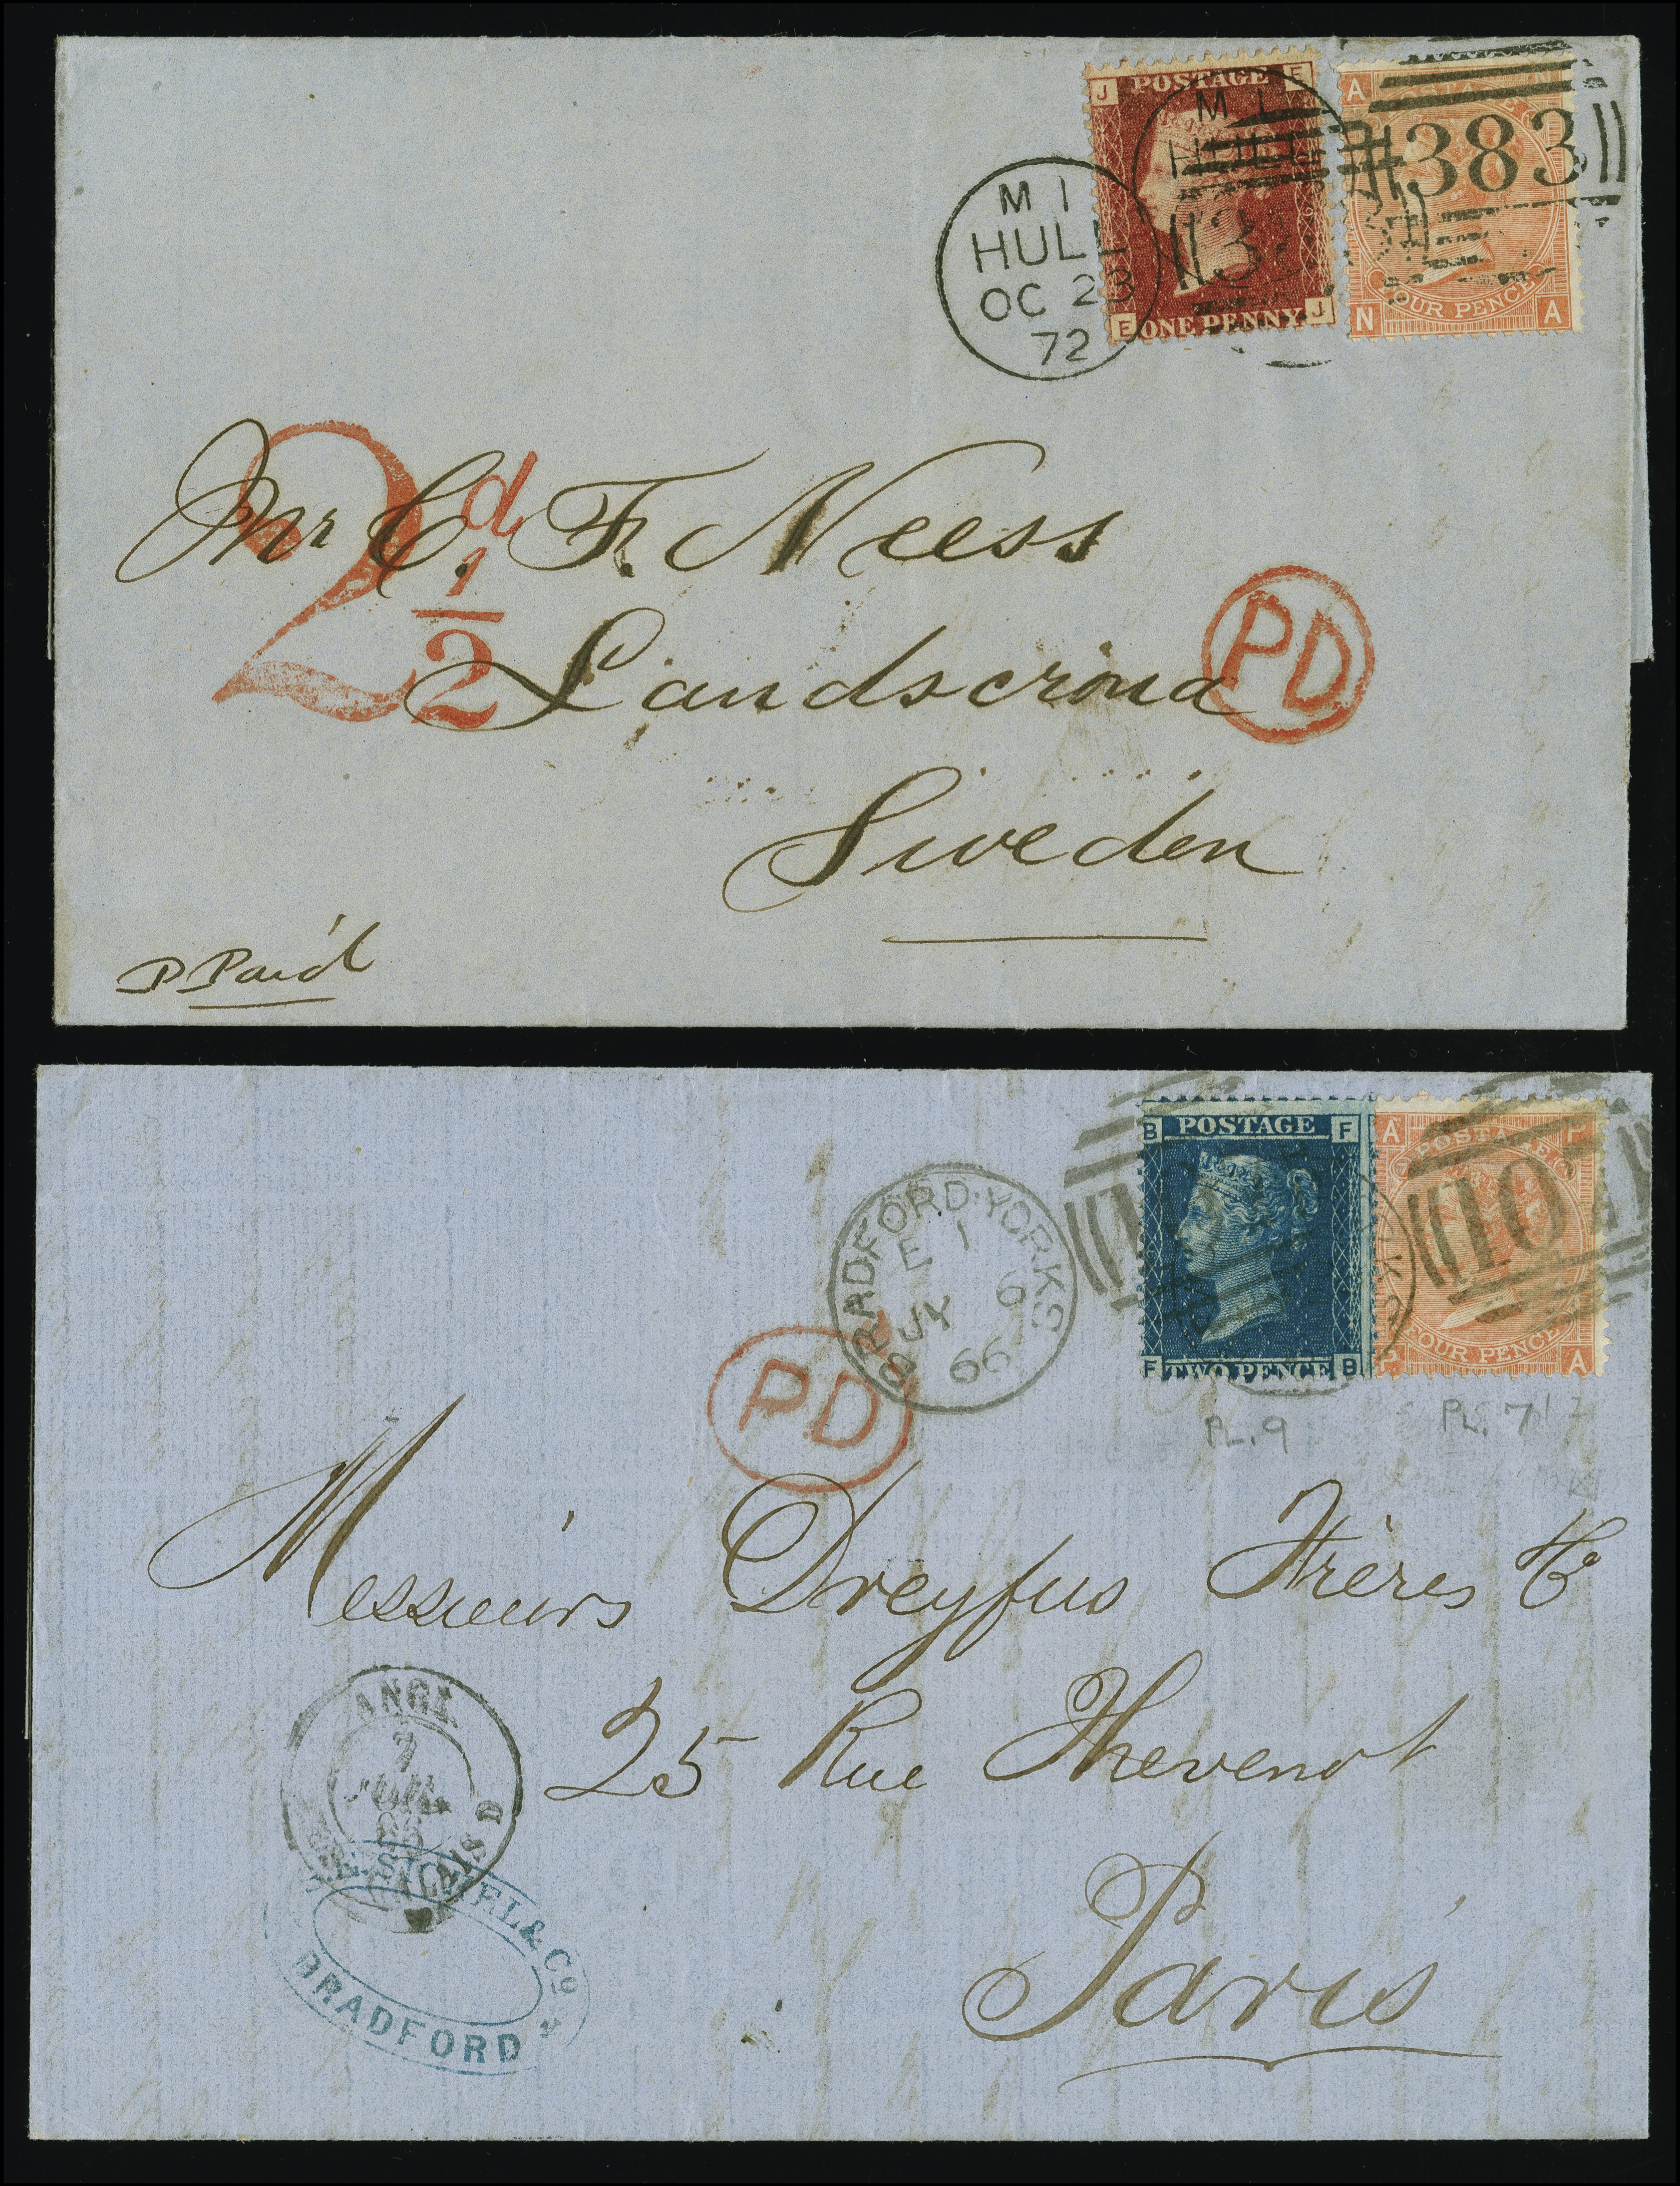 J POSTAGE E
E ONE PENNY J
A N
FOUR PENCE
N A
M 1
HULL
OC 23
72
M 1
HULL
383
2 1/2 d
Mr C. F. Neess
Landscrona
PD
Sweden
P Paid
B POSTAGE F
F TWO PENCE B
A POSTAGE P
FOUR PENCE
P A
BRADFORD·YORKS
E 1
JY 6
66
10
PD
PL. 9
PL. 7
Messieurs Dreyfus Frères & Co
25 Rue Thevenot
Paris
ANGL.
7
JUIL.
66
CALAIS D
SICHEL & Co
BRADFORD